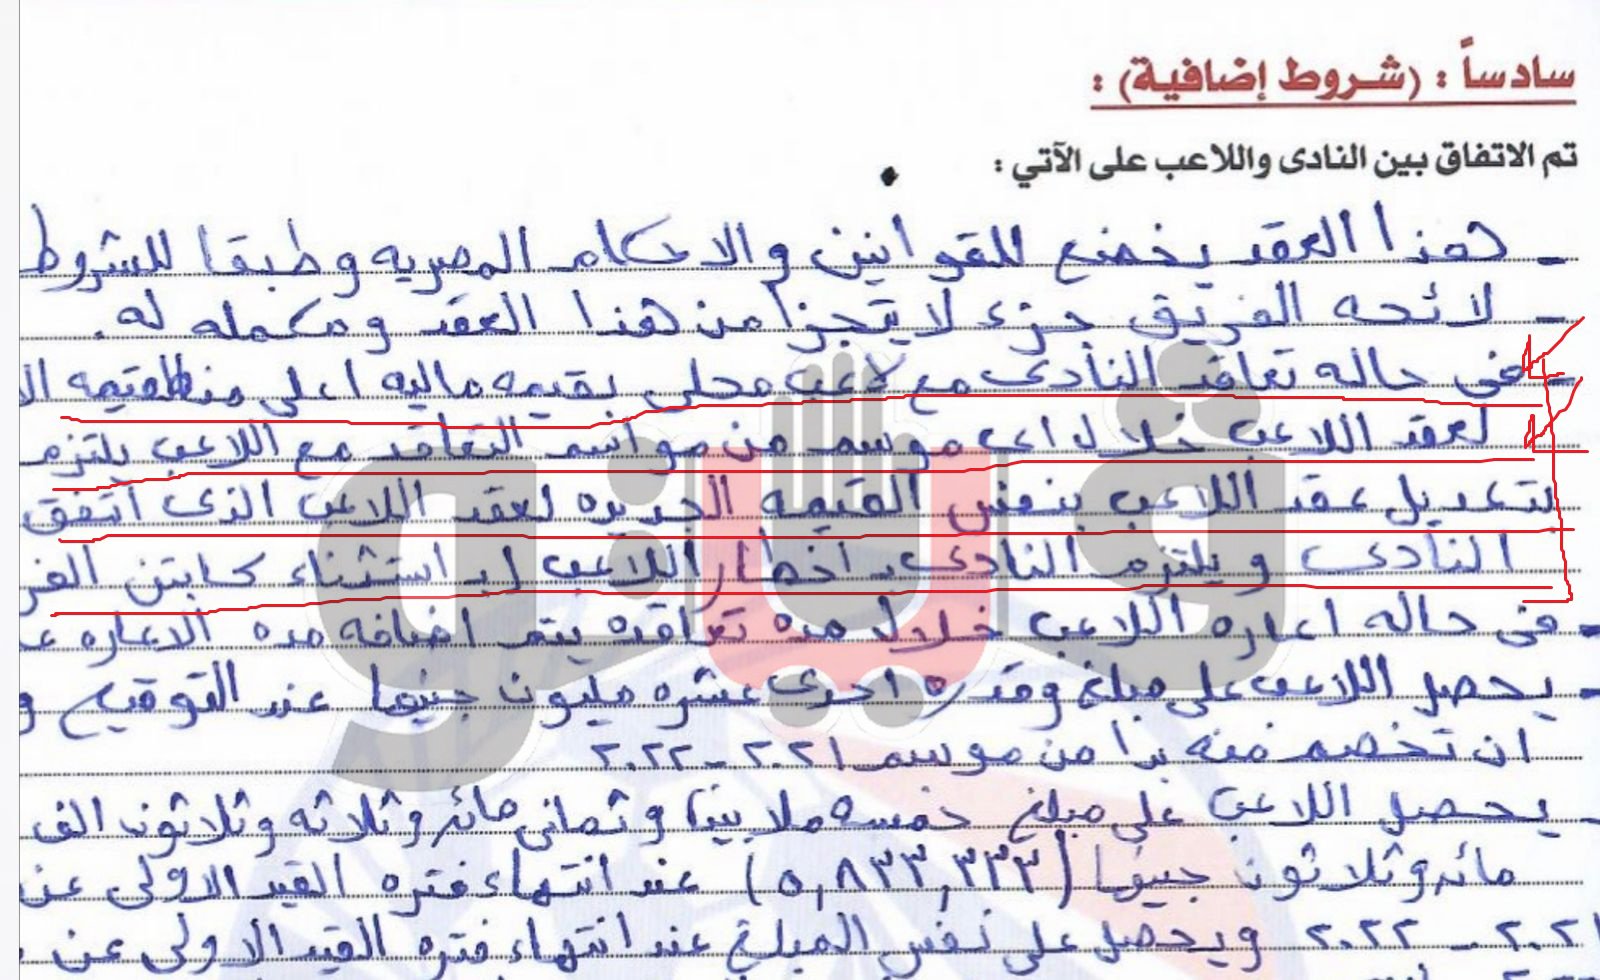 سادساً : (شروط إضافية) :
تم الاتفاق بين النادى واللاعب على الآتي :
- هذا العقد يخضع للقوانين والاحكام المصريه وطبقا للشروط
- لائحه الفريق جزء لا يتجزا من هذا العقد ومكمله له.
- فى حاله تعاقد النادى مع لاعب محلى بقيمه ماليه اعلى من القيمه
لعقد اللاعب خلال اى موسم من مواسم التعاقد مع اللاعب يلتزم
بتعديل عقد اللاعب بنفس القيمه الجديده لعقد اللاعب الذى اتفق
النادى ويلتزم النادى باخطار اللاعب باستثناء كابتن
- فى حاله اعاره اللاعب خلال مده تعاقده يتم اضافه مده الاعاره
- يحصل اللاعب على مبلغ وقدره احدى عشره مليون جنيها عند التوقيع و
ان تخصم منه بدا من موسم ٢٠٢١-٢٠٢٢
- يحصل اللاعب على مبلغ خمسه ملايين وثمانى مائه وثلاثه وثلاثون الف
مائه وثلاثون جنيها (٥,٨٣٣,٣٣٣) عند انتهاء فتره القيد الاولى عن
٢٠٢١-٢٠٢٢ ويحصل على نفس المبلغ عند انتهاء فتره القيد الاولى عن